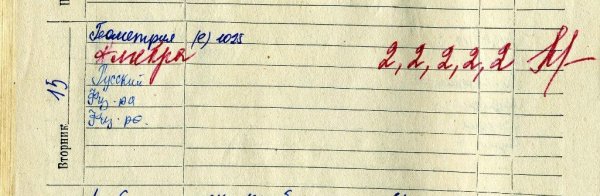 Геометрия (с) 1025
Алгебра 2, 2, 2, 2, 2
Русский
Физ-ра
Физ-ра.
Вторник 15